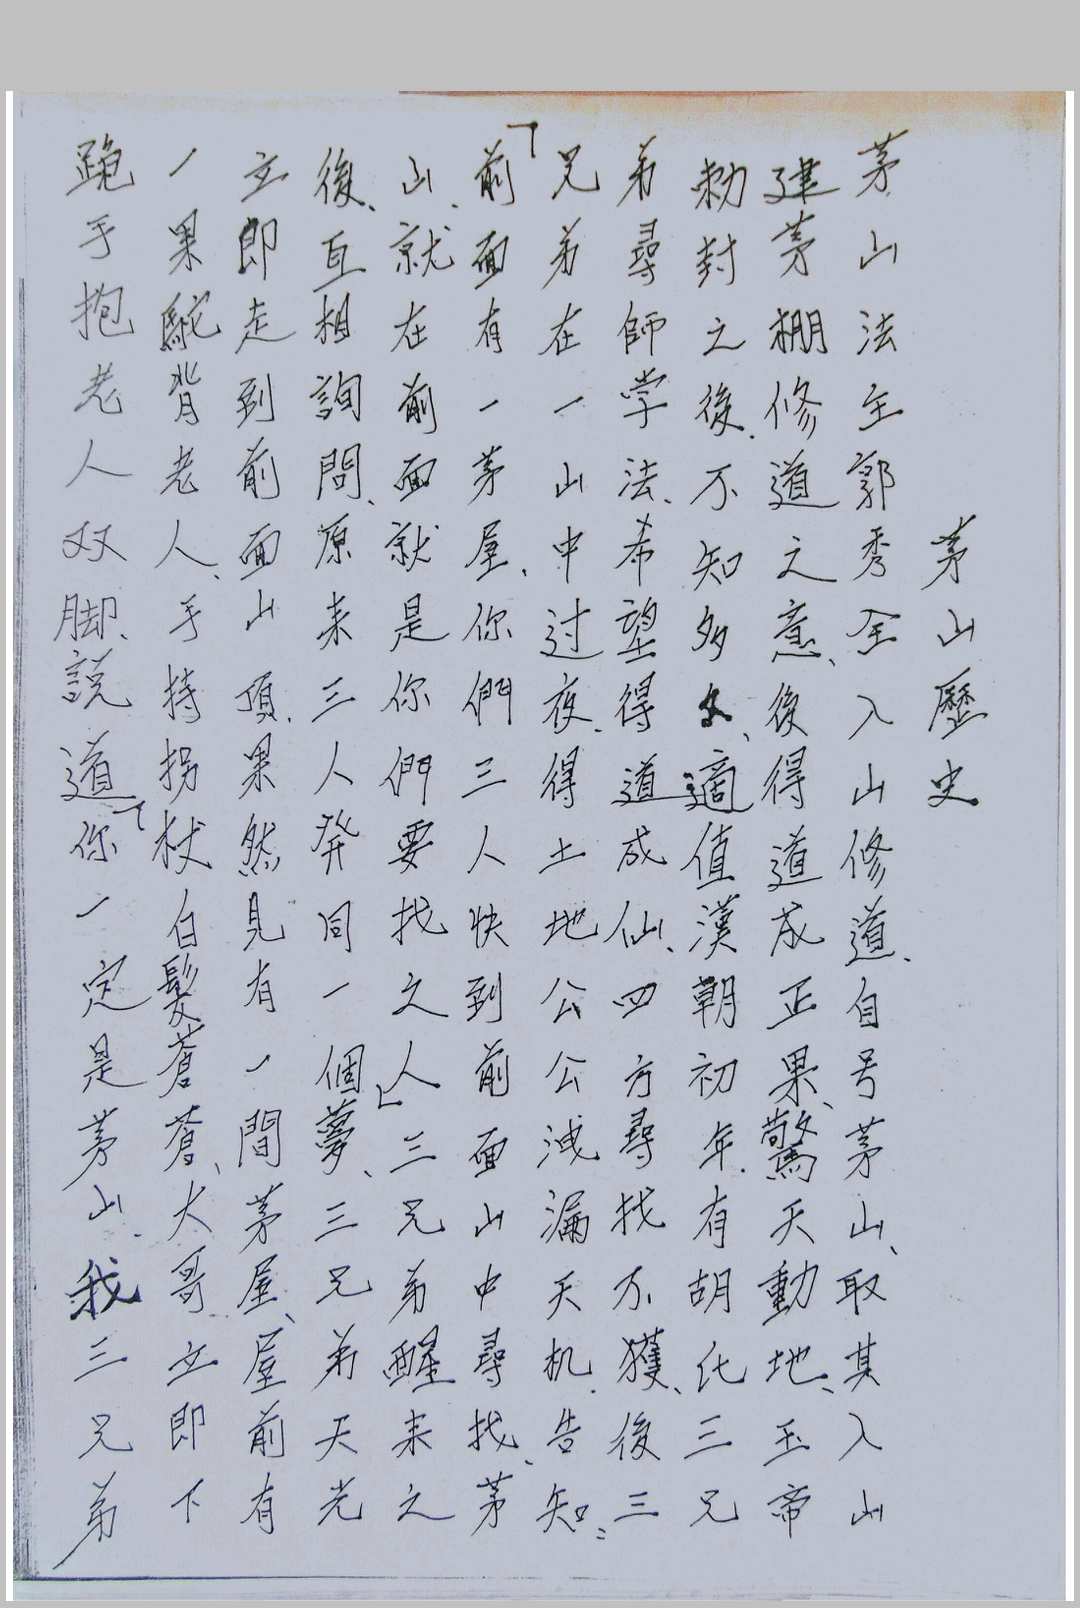 茅山歷史
茅山法主郭秀全入山修道、自号茅山、取其入山
建茅棚修道之意、後得道成正果、驚天動地、玉帝
勅封之後、不知多久、適值漢朝初年、有胡化三兄
弟尋師学法、希望得道成仙、四方尋找不獲、後三
兄弟在一山中过夜、得土地公公洩漏天机、告知：
「前面有一茅屋、你們三人快到前面山中尋找、茅
山、就在前面就是你們要找之人」三兄弟醒来之
後、互相詢問、原来三人発同一個夢、三兄弟天光
立即走到前面山頂、果然見有一間茅屋、屋前有
一果駝背老人、手持拐杖白髮蒼蒼、大哥立即下
跪手抱老人双脚、説道「你一定是茅山、我三兄弟